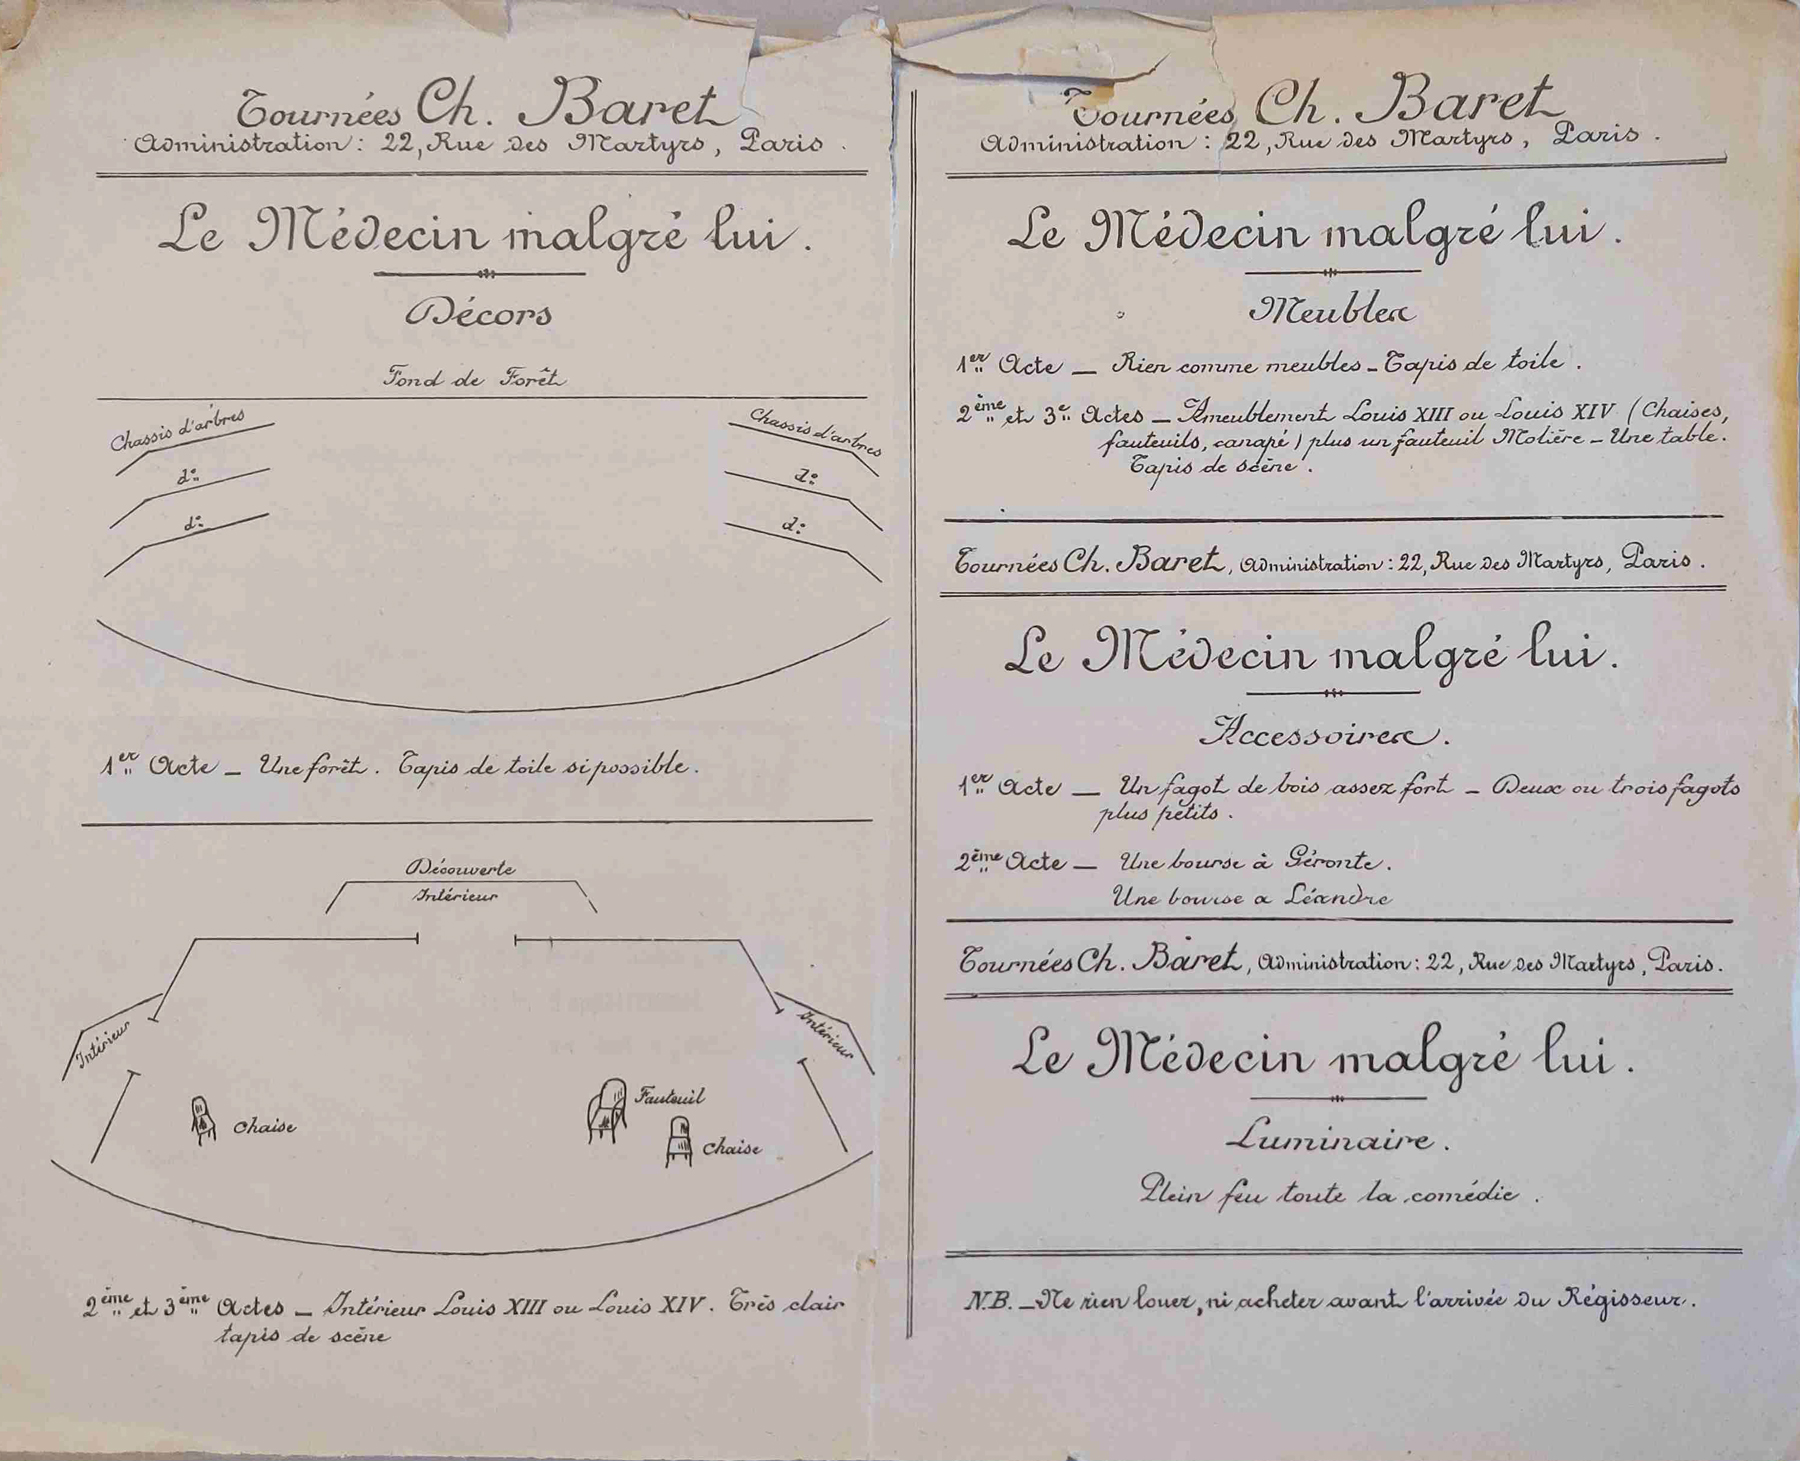 Tournées Ch. Baret
Administration : 22, Rue des Martyrs, Paris.
Le Médecin malgré lui.
Décors
Fond de Forêt
Chassis d'arbres
Chassis d'arbres
do
do
do
do
1er Acte — Une forêt. Tapis de toile si possible.
Découverte
Intérieur
Intérieur
Intérieur
Chaise
Fauteuil
Chaise
2ème et 3ème Actes — Intérieur Louis XIII ou Louis XIV. Très clair
tapis de scène
Tournées Ch. Baret
Administration : 22, Rue des Martyrs, Paris.
Le Médecin malgré lui.
Meubles
1er Acte — Rien comme meubles — Tapis de toile.
2ème et 3e Actes — Ameublement Louis XIII ou Louis XIV (Chaises,
fauteuils, canapé) plus un fauteuil Molière — Une table.
Tapis de scène.
Tournées Ch. Baret, Administration : 22, Rue des Martyrs, Paris.
Le Médecin malgré lui.
Accessoires.
1er Acte — Un fagot de bois assez fort — Deux ou trois fagots
plus petits.
2ème Acte — Une bourse à Géronte.
Une bourse a Léandre
Tournées Ch. Baret, Administration : 22, Rue des Martyrs, Paris.
Le Médecin malgré lui.
Luminaire.
Plein feu toute la comédie.
N.B. — Ne rien louer, ni acheter avant l'arrivée du Régisseur.